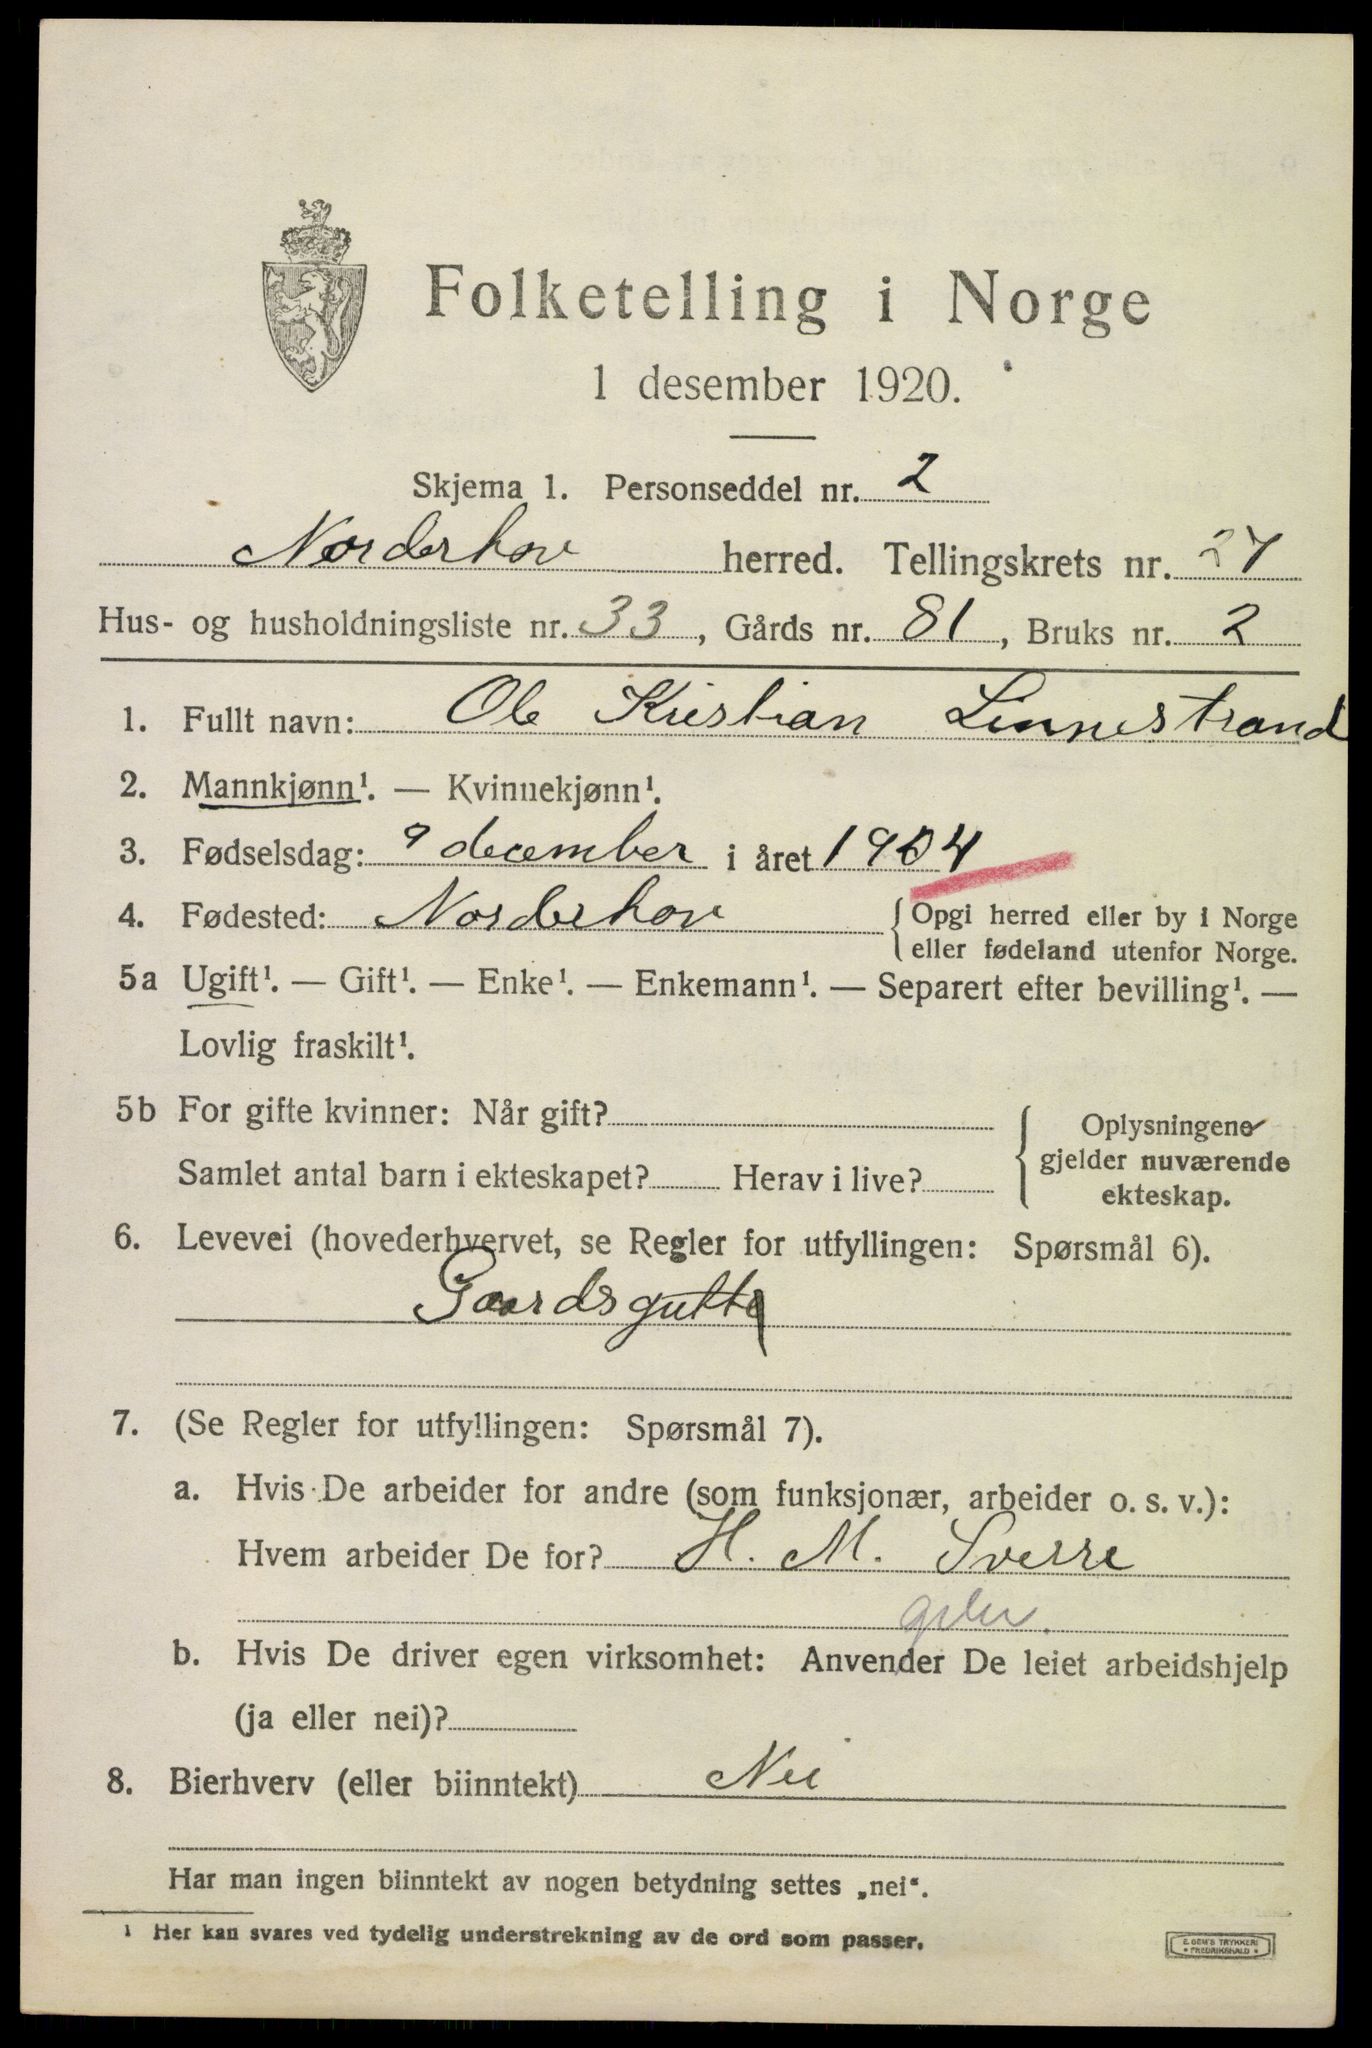 Folketelling i Norge
1 desember 1920.
Skjema 1. Personseddel nr. 2
Norderhov herred. Tellingskrets nr. 27
Hus- og husholdningsliste nr. 33, Gårds nr. 81, Bruks nr. 2
1. Fullt navn: Ole Kristian Linnestrand
2. Mannkjønn¹. — Kvinnekjønn¹.
3. Fødselsdag: 9 december i året 1904
4. Fødested: Norderhov { Opgi herred eller by i Norge
eller fødeland utenfor Norge.
5a Ugift¹. — Gift¹. — Enke¹. — Enkemann¹. — Separert efter bevilling¹. —
Lovlig fraskilt¹.
5b For gifte kvinner: Når gift? Oplysningene
Samlet antal barn i ekteskapet? Herav i live? gjelder nuværende
ekteskap.
6. Levevei (hovederhvervet, se Regler for utfyllingen: Spørsmål 6).
Gaardsgutt
7. (Se Regler for utfyllingen: Spørsmål 7).
a. Hvis De arbeider for andre (som funksjonær, arbeider o. s. v.):
Hvem arbeider De for? H. M. Sverre
b. Hvis De driver egen virksomhet: Anvender De leiet arbeidshjelp
(ja eller nei)?
8. Bierhverv (eller biinntekt) Nei
Har man ingen biinntekt av nogen betydning settes „nei“.
¹ Her kan svares ved tydelig understrekning av de ord som passer.
E. SEM'S TRYKKERI
• FREDRIKSHALD •